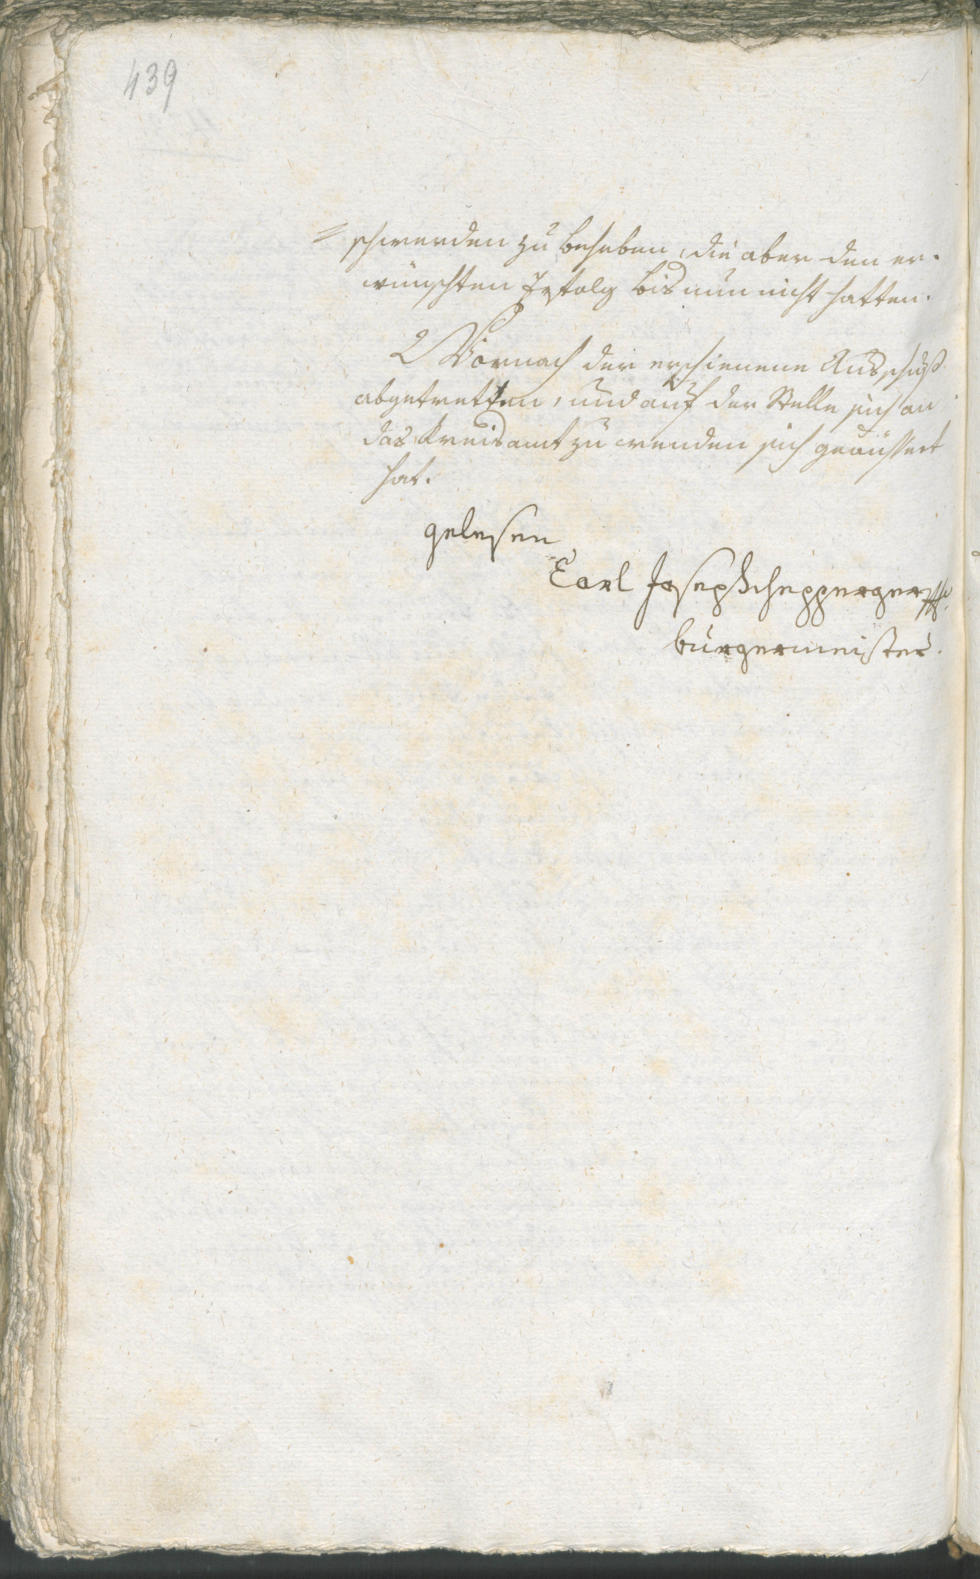 439
= schwerden zu beheben, die aber den er-
wünschten Erfolg bis nun nicht hatten.
Wornach der erschienene Ausschuß
abgetretten, und auf der Stelle sich an
das Kreisamt zu wenden sich geäussert
hat.
gelesen
Carl Joseph
burgermeister.